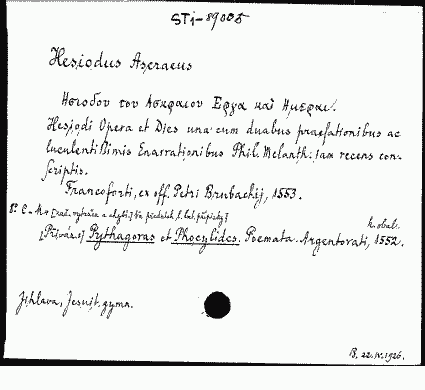 STi-89005
Hesiodus Ascraeus
Ησιοδου του Ασκραιου Εργα και Ημεραι.
Hesiodi Opera et Dies una cum duabus praefationibus ac
luculentissimis Enarrationibus Phil. Melanth. iam recens con-
scriptis.
Francoforti, ex off. Petri Brubachij, 1553.
8° C. M + [zač. vytržen a chybí] předešlá, lat. přípisky]
h. obal.
[Přiváz.:] Pythagoras et Phocylides. Poemata. Argentorati, 1552.
Jihlava, Jesuit. gymn.
B. 22.IV.1926.